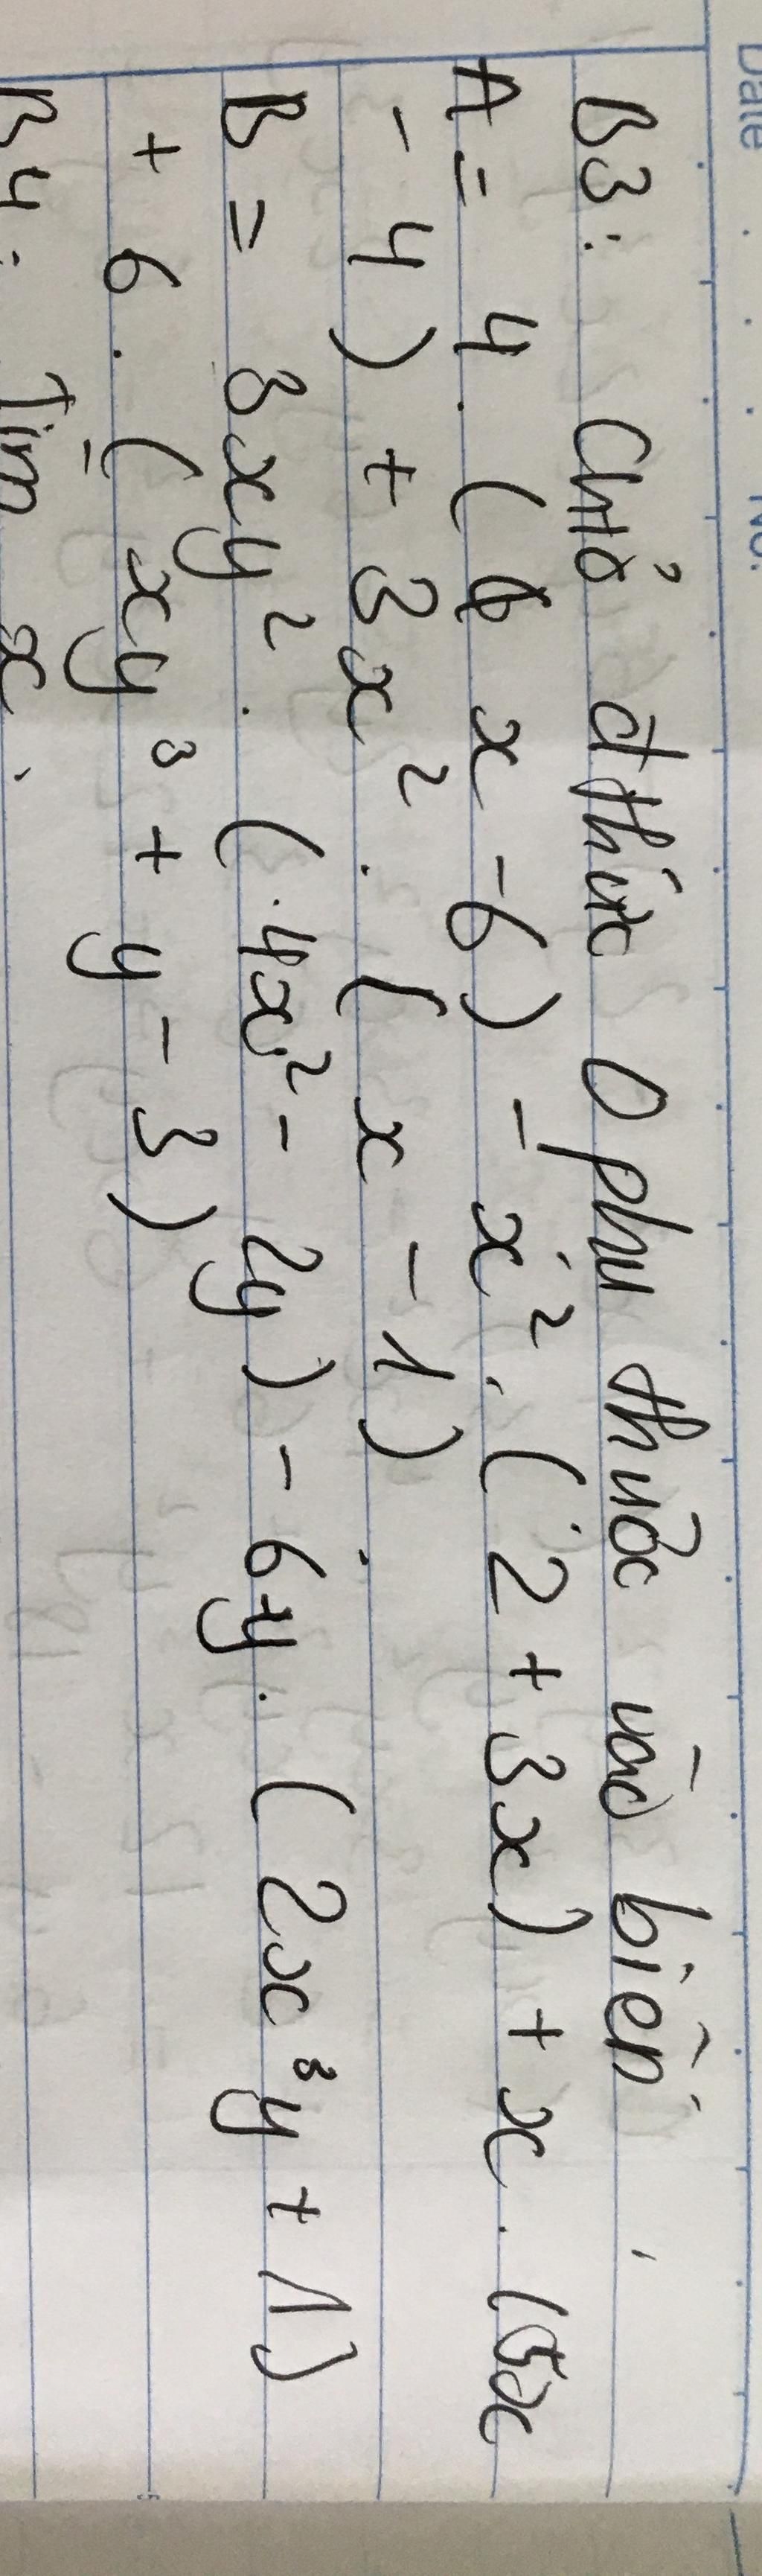 Date No.
B3: CHTỏ đthức O phụ thuộc vào biến
A = 4. ( x - 6) - x². (2 + 3x) + x. (5x
- 4) + 3x². (x - 1)
B = 3xy². (4x² - 2y) - 6y. (2x³y + 1)
+ 6. (xy³ + y - 3)
B4: Tìm x: